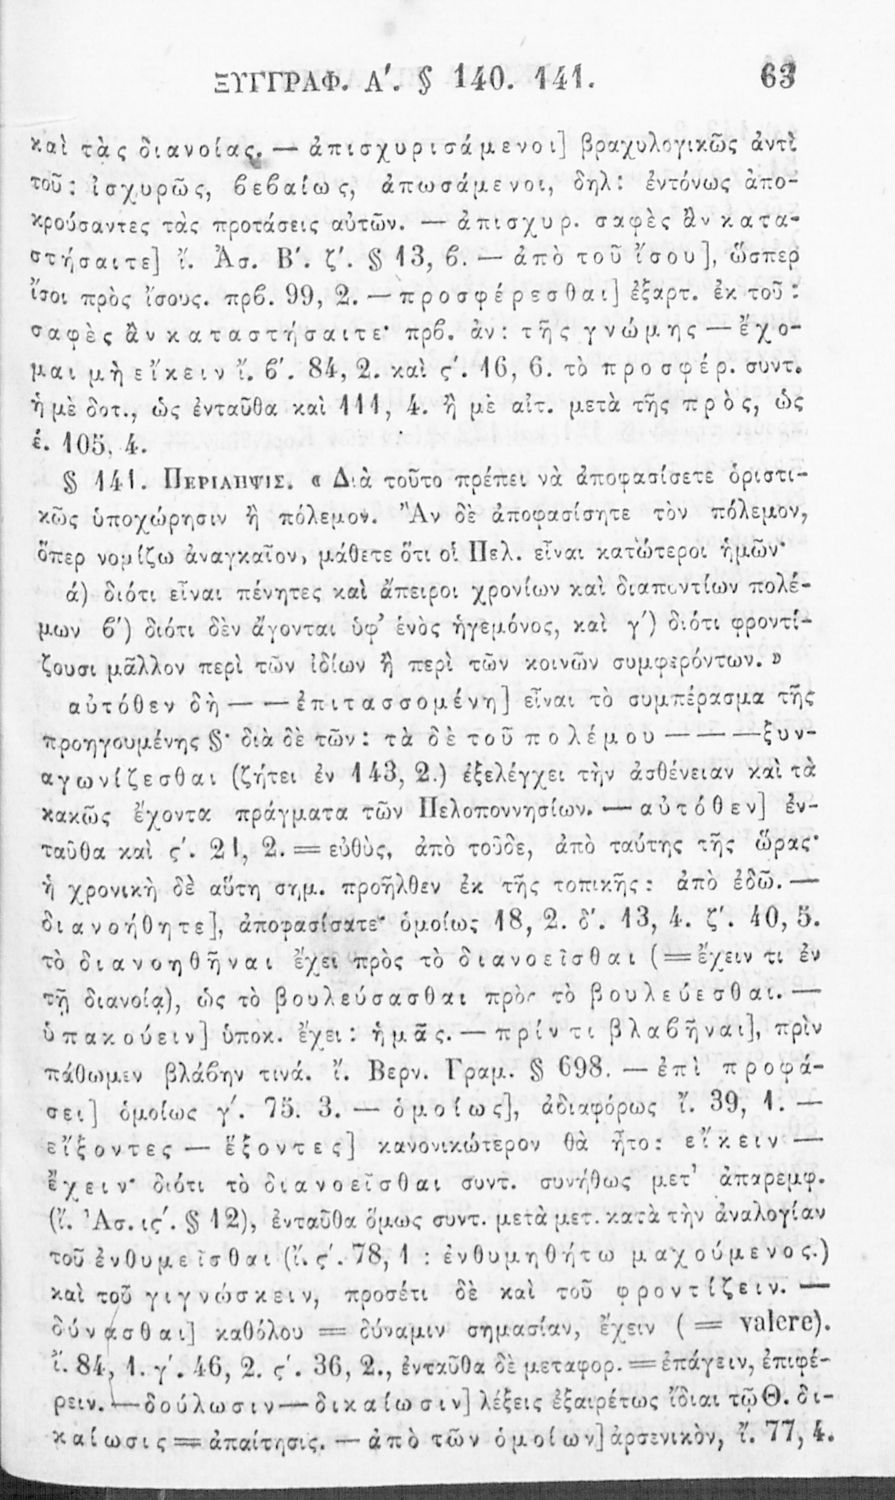 ΞΥΓΓΡΑΦ. Α΄. § 140. 141. 63
καὶ τὰς διανοίας. — ἀπισχυρισάμενοι] βραχυλογικῶς ἀντὶ
τοῦ: ἰσχυρῶς, βεβαίως, ἀπωσάμενοι, δηλ: ἐντόνως ἀπο-
κρούσαντες τὰς προτάσεις αὐτῶν. — ἀπισχυρ. σαφὲς ἂν κατα-
στήσαιτε] ἴ. Ἀσ. Β΄. ζ΄. § 13, β. — ἀπὸ τοῦ ἴσου], ὥσπερ
ἴσοι πρὸς ἴσους. πρβ. 99, 2. — προσφέρεσθαι] ἐξαρτ. ἐκ τοῦ:
σαφὲς ἂν καταστήσαιτε· πρβ. ἀν: τῆς γνώμης — ἔχο-
μαι μὴ εἴκειν ἴ. β΄. 84, 2. καὶ ς΄. 16, 6. τὸ προσφέρ. συντ.
ἡ μὲ δοτ., ὡς ἐνταῦθα καὶ 111, 4. ἢ μὲ αἰτ. μετὰ τῆς πρὸς, ὡς
ἐ. 105, 4.
§ 141. ΠΕΡΙΛΗΨΙΣ. « Διὰ τοῦτο πρέπει νὰ ἀποφασίσετε ὁριστι-
κῶς ὑποχώρησιν ἢ πόλεμον. Ἂν δὲ ἀποφασίσητε τὸν πόλεμον,
ὅπερ νομίζω ἀναγκαῖον, μάθετε ὅτι οἱ Πελ. εἶναι κατώτεροι ἡμῶν·
ά) διότι εἶναι πένητες καὶ ἄπειροι χρονίων καὶ διαποντίων πολέ-
μων β΄) διότι δὲν ἄγονται ὑφ' ἑνὸς ἡγεμόνος, καὶ γ΄) διότι φροντί-
ζουσι μᾶλλον περὶ τῶν ἰδίων ἢ περὶ τῶν κοινῶν συμφερόντων. »
αὐτόθεν δὴ — — ἐπιτασσομένη] εἶναι τὸ συμπέρασμα τῆς
προηγουμένης §· διὰ δὲ τῶν: τὰ δὲ τοῦ πολέμου — — — ξυν-
αγωνίζεσθαι (ζήτει ἐν 143, 2.) ἐξελέγχει τὴν ἀσθένειαν καὶ τὰ
κακῶς ἔχοντα πράγματα τῶν Πελοποννησίων. — αὐτόθεν] ἐν-
ταῦθα καὶ ς΄. 21, 2. = εὐθὺς, ἀπὸ τοῦδε, ἀπὸ ταύτης τῆς ὥρας·
ἡ χρονικὴ δὲ αὕτη σημ. προῆλθεν ἐκ τῆς τοπικῆς: ἀπὸ ἐδῶ. —
διανοήθητε], ἀποφασίσατε· ὁμοίως 18, 2. δ΄. 13, 4. ζ΄. 40, 5.
τὸ διανοηθῆναι ἔχει πρὸς τὸ διανοεῖσθαι (= ἔχειν τι ἐν
τῇ διανοίᾳ), ὡς τὸ βουλεύσασθαι πρὸς τὸ βουλεύεσθαι. —
ὑπακούειν] ὑποκ. ἔχει: ἡμᾶς. — πρίν τι βλαβῆναι], πρὶν
πάθωμεν βλάβην τινά. ἴ. Βερν. Γραμ. § 698. — ἐπὶ προφά-
σει] ὁμοίως γ΄. 75. 3. — ὁμοίως], ἀδιαφόρως ἴ. 39, 1. —
εἴξοντες — ἕξοντες] κανονικώτερον θὰ ἦτο: εἴκειν —
ἔχειν· διότι τὸ διανοεῖσθαι συντ. συνήθως μετ' ἀπαρεμφ.
(ἴ. Ἀσ. ις΄. § 12), ἐνταῦθα ὅμως συντ. μετὰ μετ. κατὰ τὴν ἀναλογίαν
τοῦ ἐνθυμεῖσθαι (ἴ. ς΄. 78, 1 : ἐνθυμηθήτω μαχούμενος.)
καὶ τοῦ γιγνώσκειν, προσέτι δὲ καὶ τοῦ φροντίζειν. —
δύνασθαι] καθόλου = δύναμιν σημασίαν, ἔχειν ( = valere).
ἴ. 84, 1. γ΄. 46, 2. ς΄. 36, 2., ἐνταῦθα δὲ μεταφορ. = ἐπάγειν, ἐπιφέ-
ρειν. — δούλωσιν — δικαίωσιν] λέξεις ἐξαιρέτως ἴδιαι τῷ Θ. δι-
καίωσις = ἀπαίτησις. — ἀπὸ τῶν ὁμοίων] ἀρσενικὸν, ἴ. 77, 4.